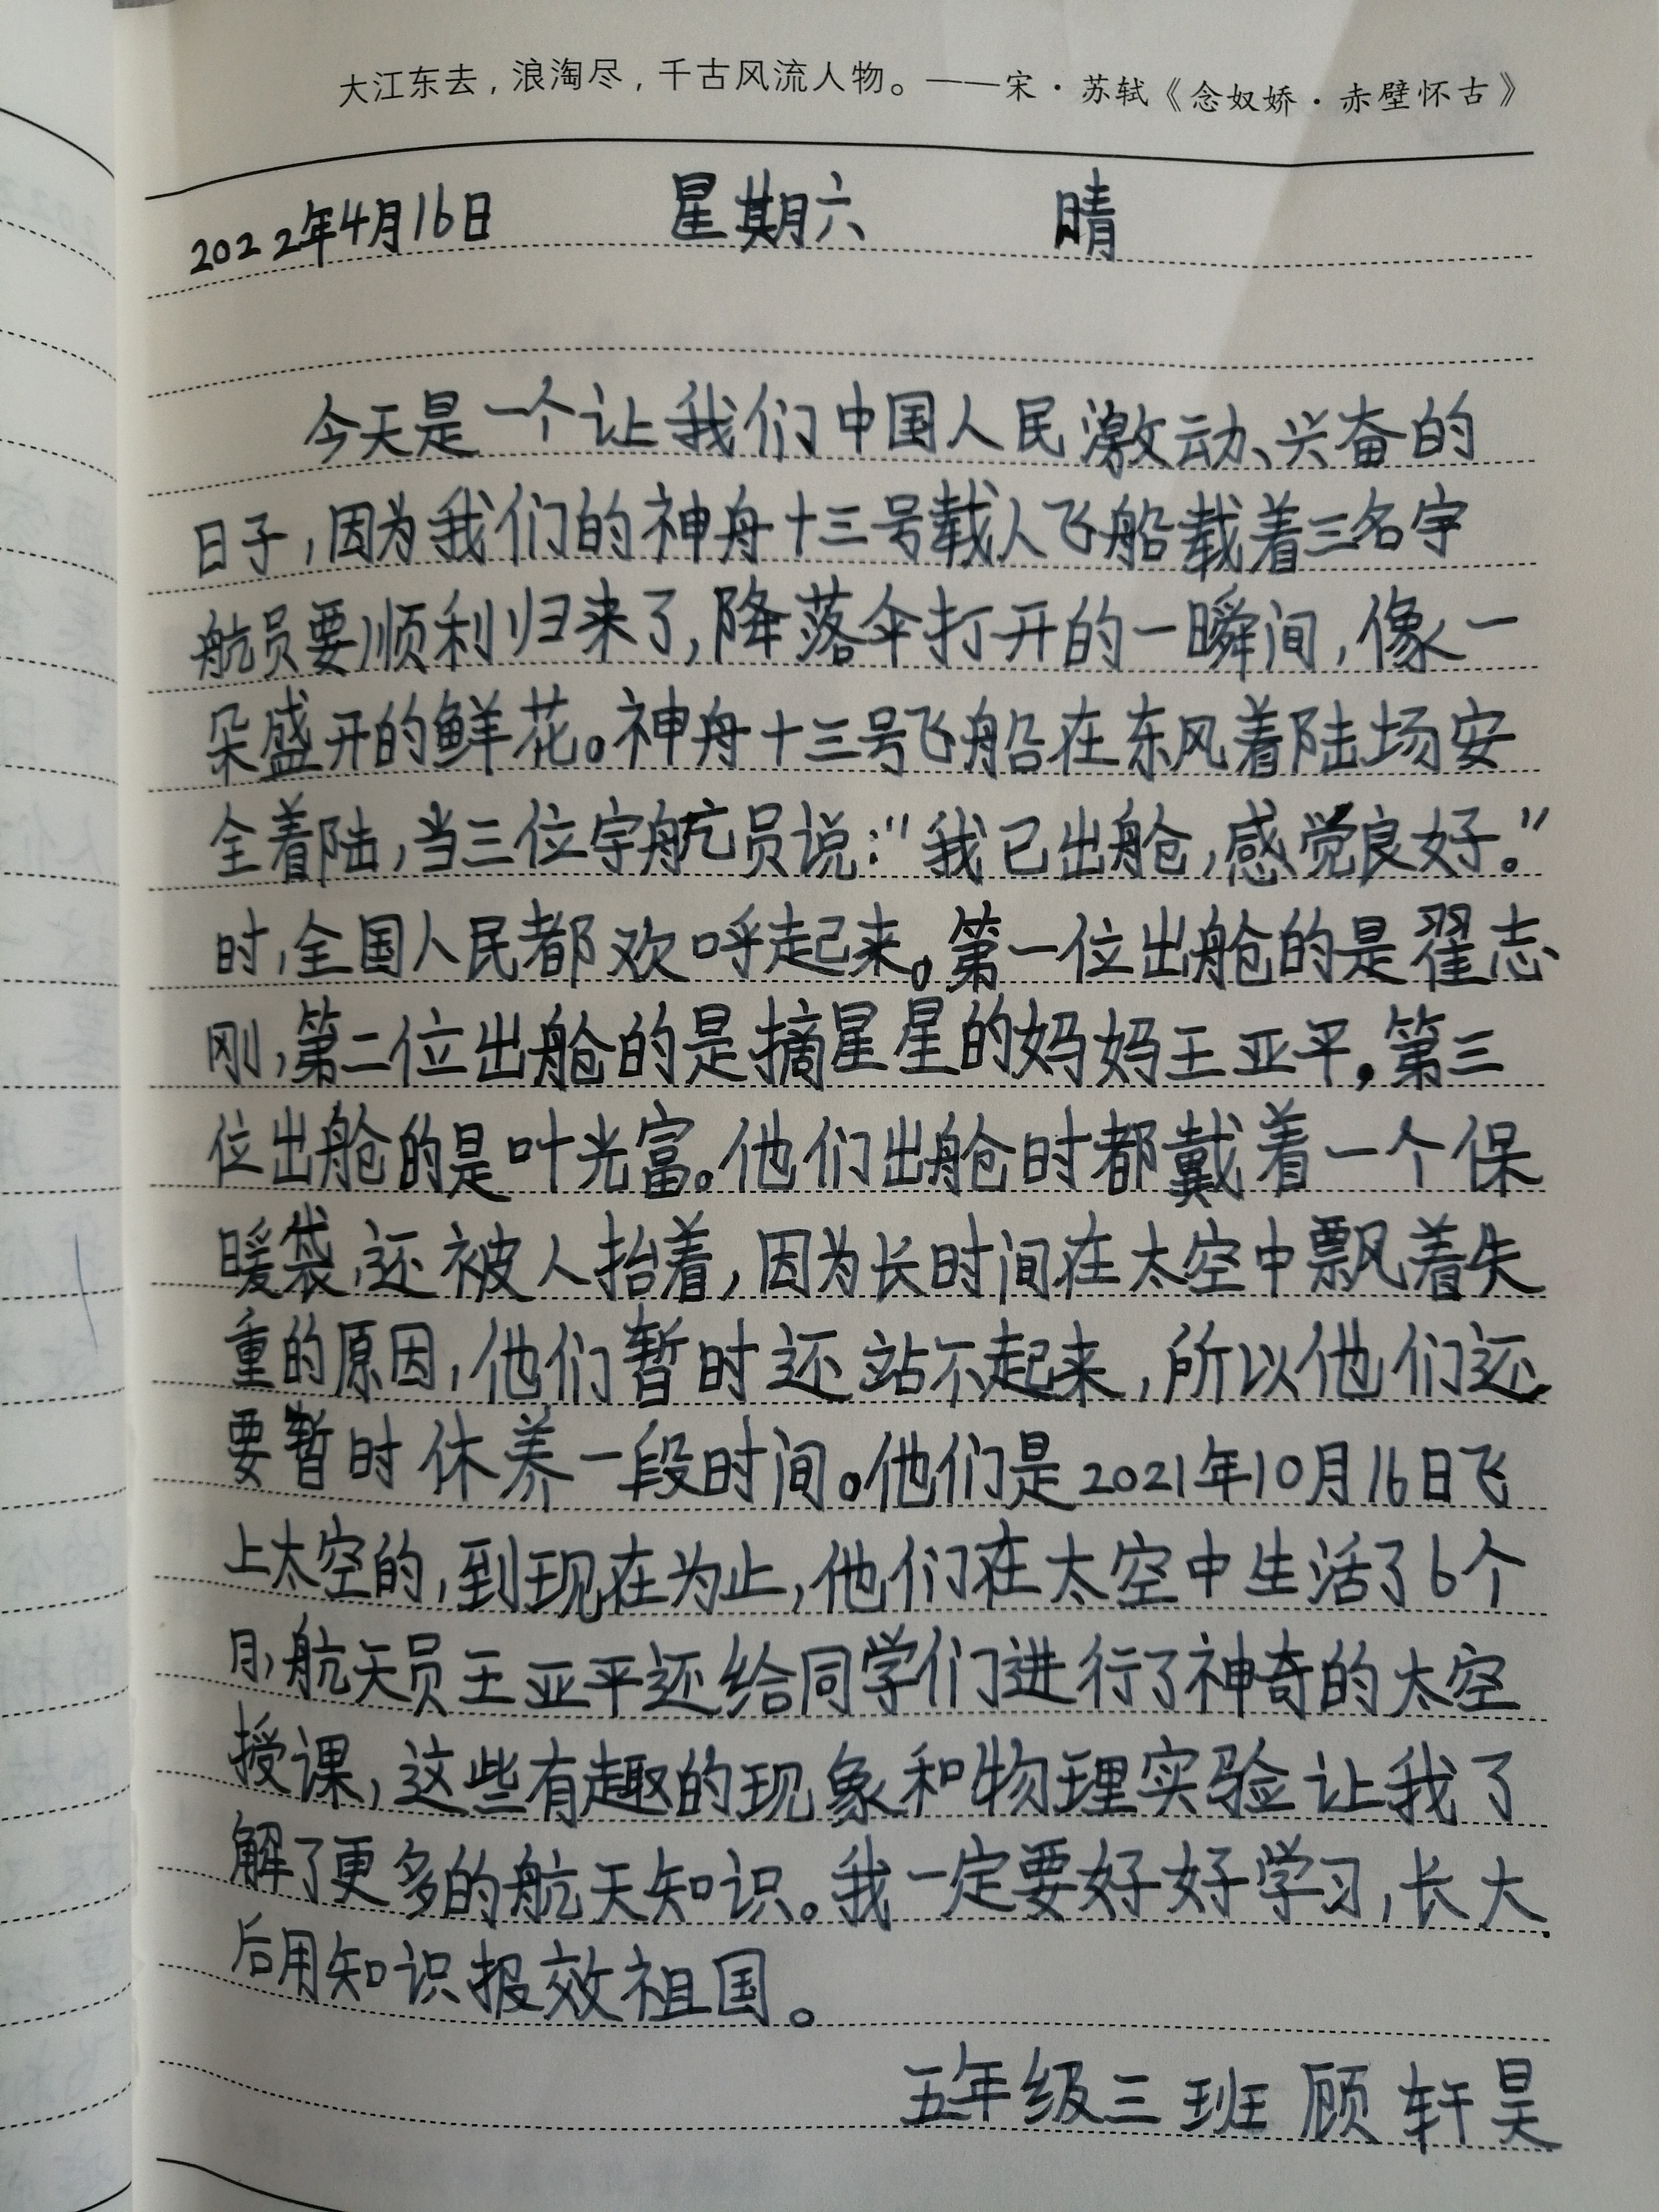 大江东去，浪淘尽，千古风流人物。——宋·苏轼《念奴娇·赤壁怀古》
2022年4月16日 星期六 晴
今天是一个让我们中国人民激动、兴奋的
日子，因为我们的神舟十三号载人飞船载着三名宇
航员要顺利归来了，降落伞打开的一瞬间，像一
朵盛开的鲜花。神舟十三号飞船在东风着陆场安
全着陆，当三位宇航员说："我已出舱，感觉良好。"
时，全国人民都欢呼起来。第一位出舱的是翟志
刚，第二位出舱的是摘星星的妈妈王亚平，第三
位出舱的是叶光富。他们出舱时都戴着一个保
暖袋，还被人抬着，因为长时间在太空中飘着失
重的原因，他们暂时还站不起来，所以他们还
要暂时休养一段时间。他们是2021年10月16日飞
上太空的，到现在为止，他们在太空中生活了6个
月，航天员王亚平还给同学们进行了神奇的太空
授课，这些有趣的现象和物理实验让我了
解了更多的航天知识。我一定要好好学习，长大
后用知识报效祖国。
五年级三班 顾轩昊